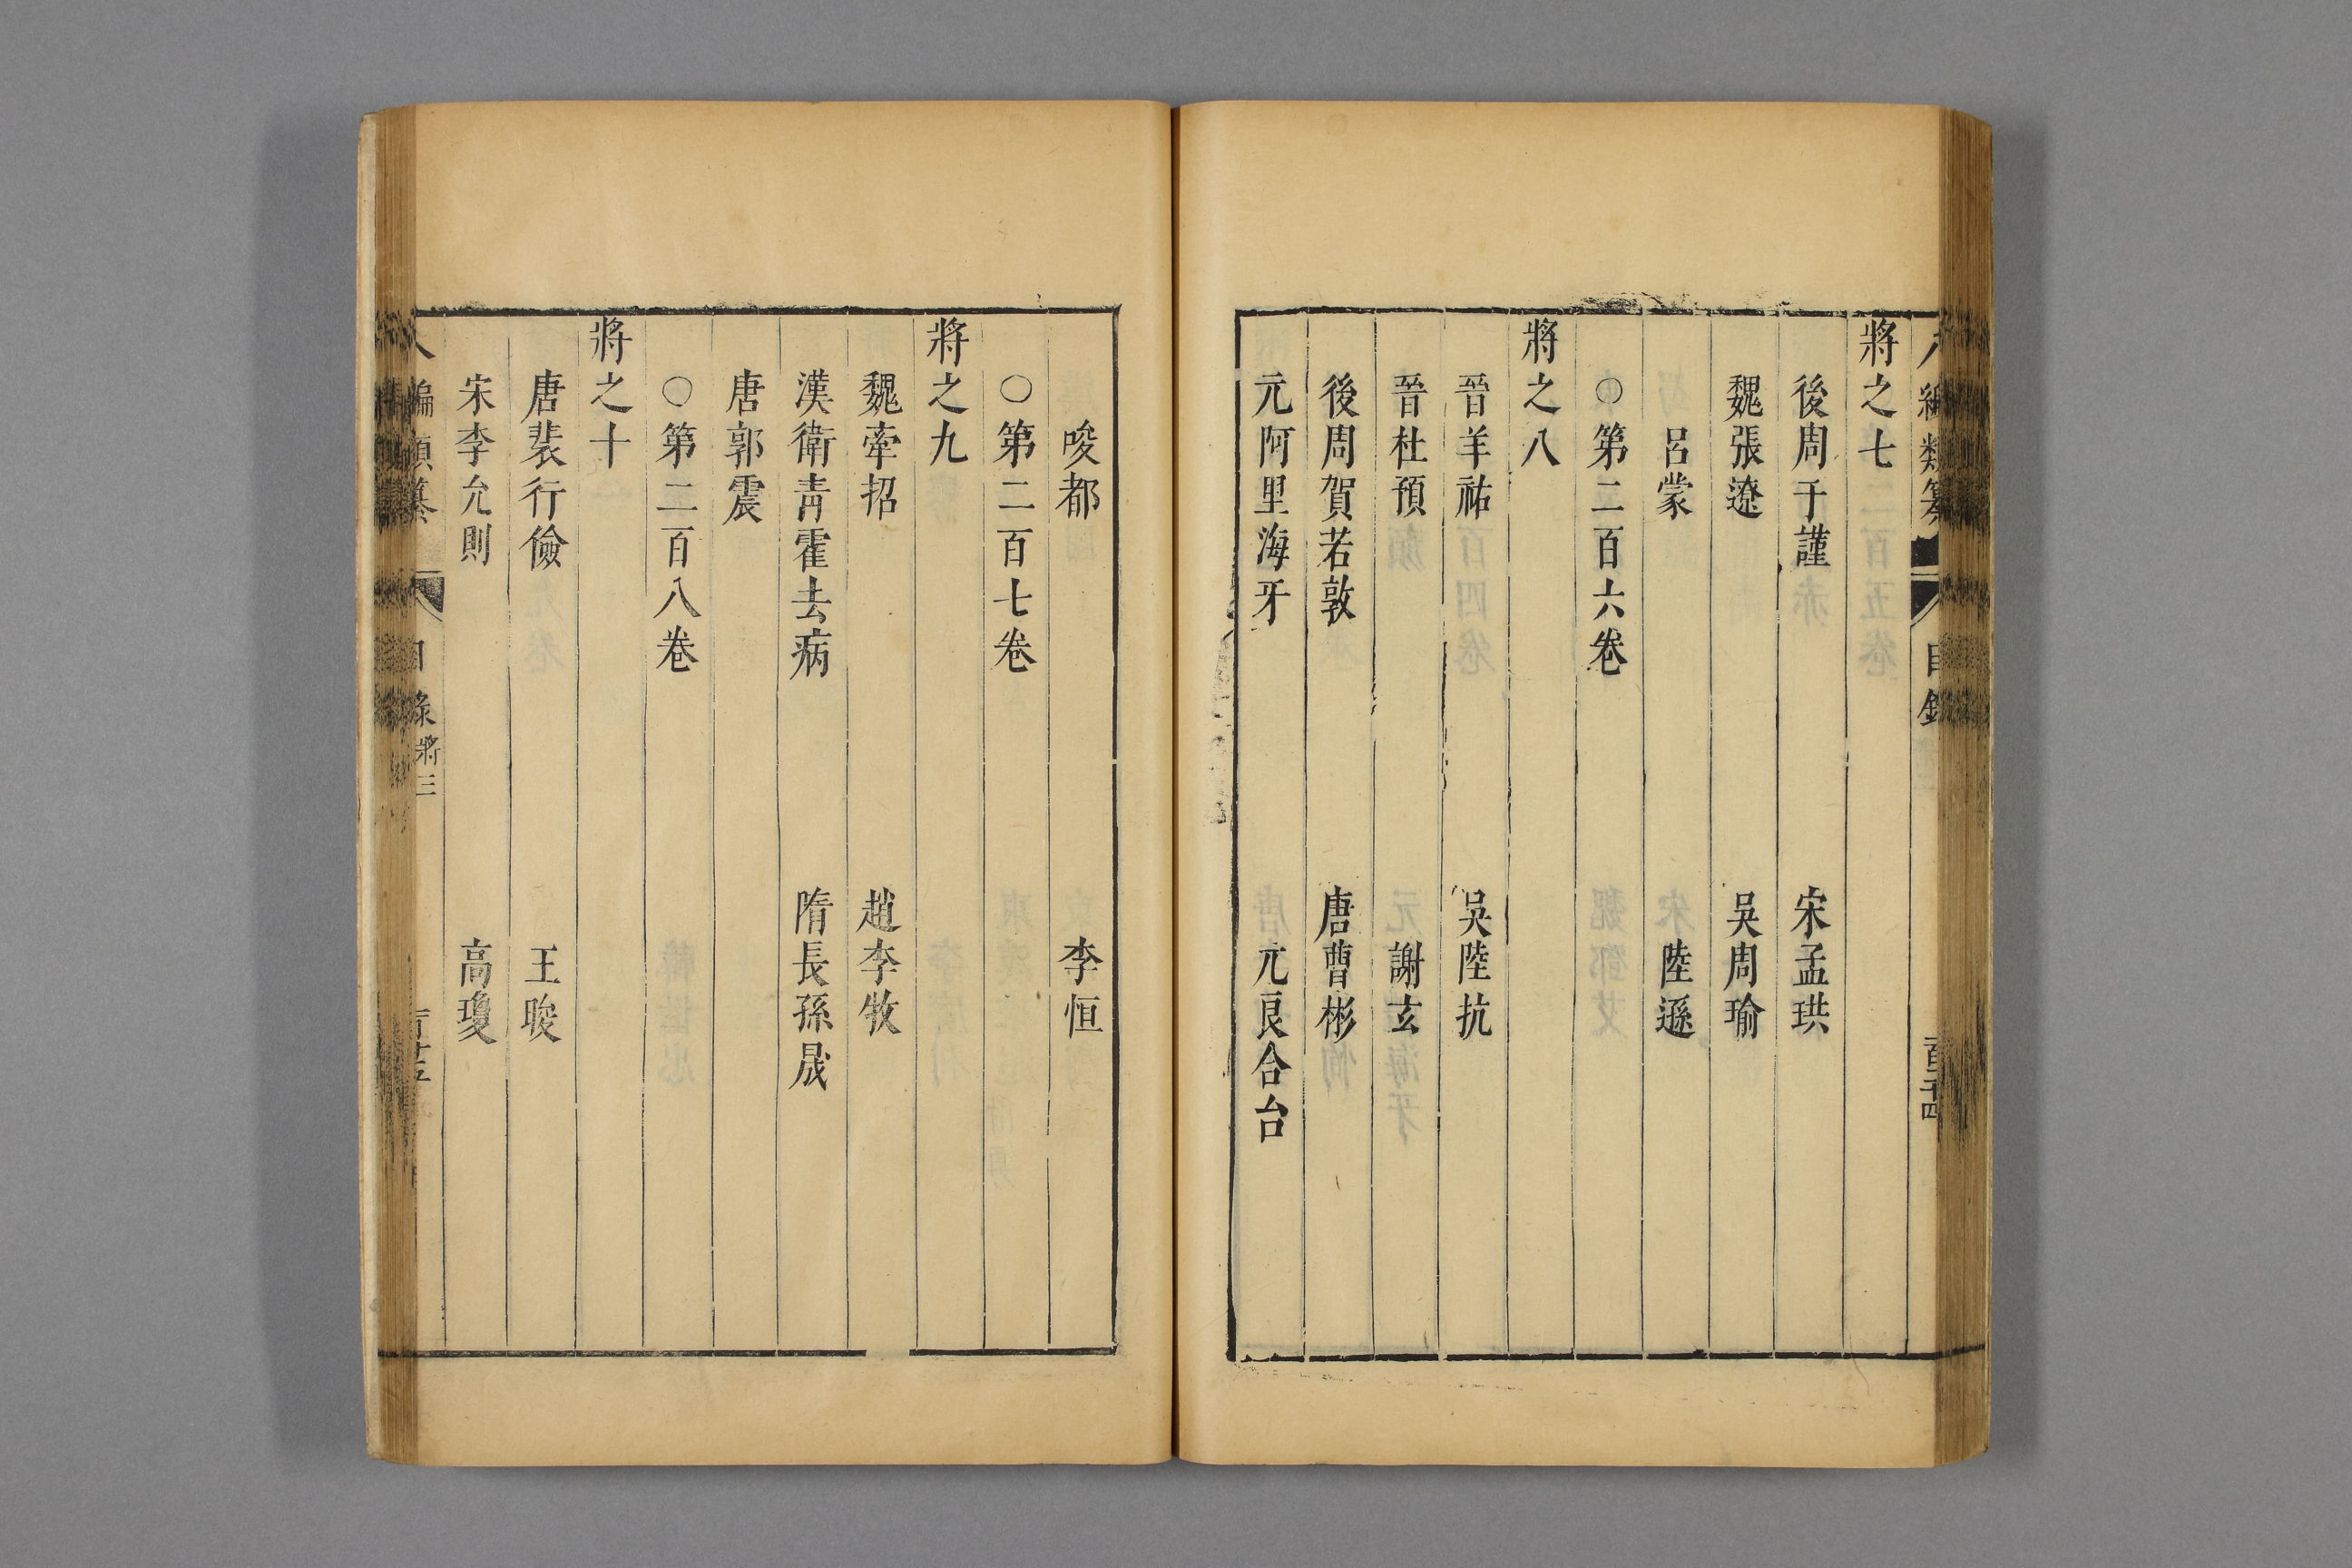 編類纂 目錄
將之七
後周于謹 宋孟珙
魏張遼 吳周瑜
呂蒙 陸遜
○第二百六卷
將之八
晉羊祜 吳陸抗
晉杜預 謝玄
後周賀若敦 唐曹彬
元阿里海牙 元良合台
唆都 李恒
○第二百七卷
將之九
魏牽招 趙李牧
漢衛青霍去病 隋長孫晟
唐郭震
○第二百八卷
將之十
唐裴行儉 王晙
宋李允則 高瓊
編類纂 目錄 將三